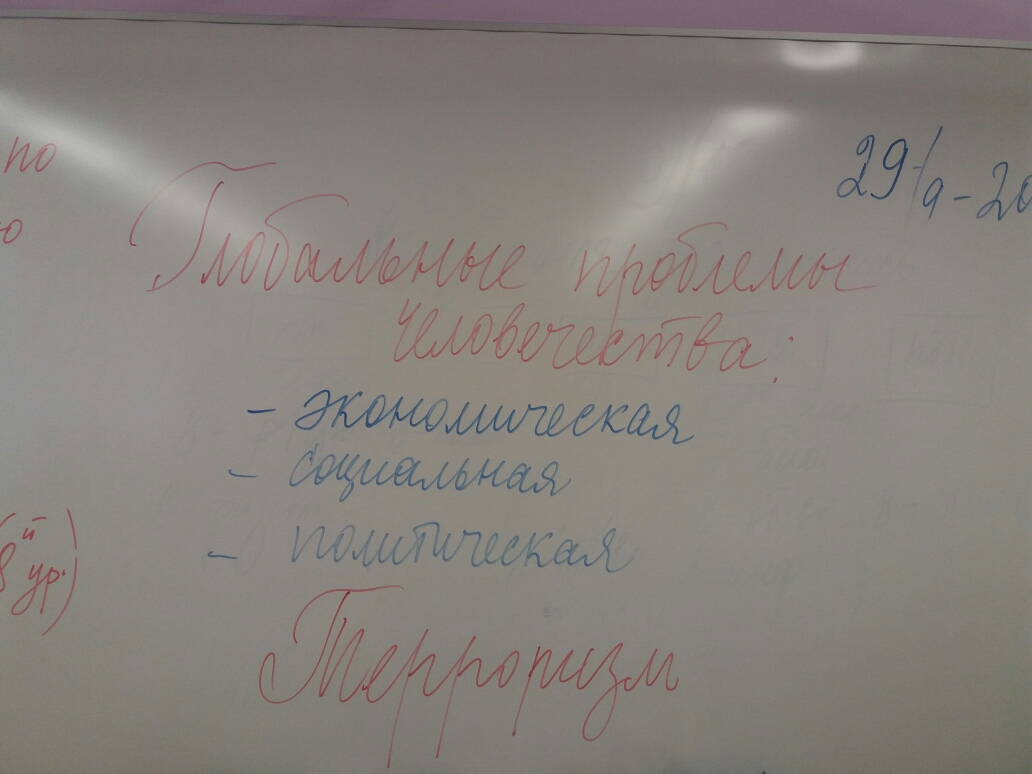 по
29/9-20
Глобальные проблемы
человечества:
- экономическая
- социальная
- политическая
(8й ур.)
Терроризм